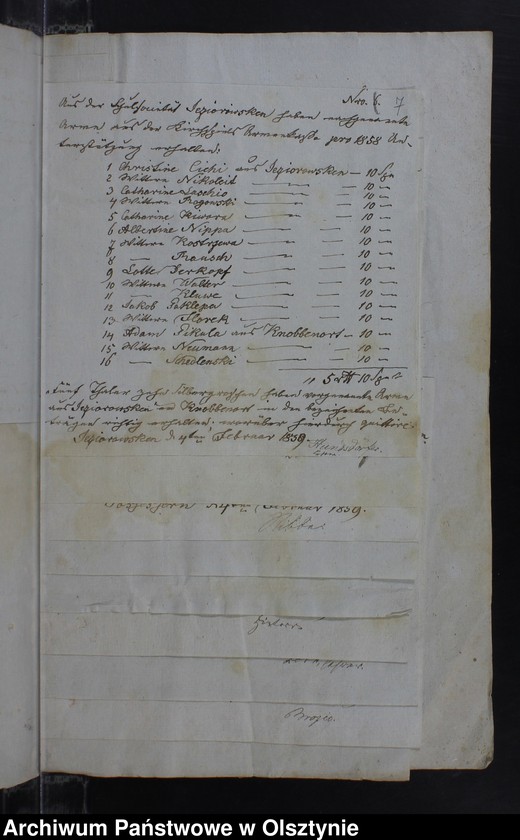 Nro. 7
Aus der Schulsocietät Jeziorowsken haben nachgenannte
Arme aus der Kirchspiels Armenkasse pro 1858 Un-
terstützung erhalten:
1 Christine Cichi aus Jeziorowsken — 10 Sgr
2 Wittwe Nikoleit — 10 —
3 Catharine — 10 —
4 Wittwe Rogowski — 10 —
5 Catharine Kurera — 10 —
6 Albertine Nippa — 10 —
7 Wittwe Kostrzewa — 10 —
8 — Prausch — 10 —
9 Lotte Jerkopf — 10 —
10 Wittwe Walter — 10 —
11 — Kluwe — 10 —
12 Jakob Saklepa — 10 —
13 Wittwe Slorek — 10 —
14 Adam Pikula aus Knobbenort — 10 —
15 Wittwe Neumann — 10 —
16 — Schedlenski — 10 —
5 10 Sgr
Fünf Thaler zehn Silbergroschen haben vorgenannte Arme
aus Jeziorowsken und Knobbenort in den bezeichneten Be-
trägen richtig erhalten, worüber hierdurch quittirt
Jeziorowsken d Februar 1859.
1859.
Archiwum Państwowe w Olsztynie